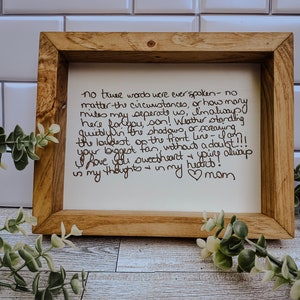 no truer words were ever spoken - no
matter the circumstances, or how many
miles may seperate us, I'm always
here for you, son! Wether standing
quietly in the shadows, or screaming
the loudest on the front line - I am
your biggest fan, without a doubt!!!
I love you sweetheart & you're always
in my thoughts & in my heart!
♡ mom